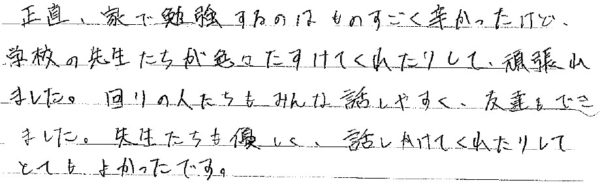 正直、家で勉強するのはものすごく辛かったけど、
学校の先生たちが色々たすけてくれたりして、頑張れ
ました。回りの人たちもみんな話しやすく、友達もでき
ました。先生たちも優しく、話しかけてくれたりして
とてもよかったです。